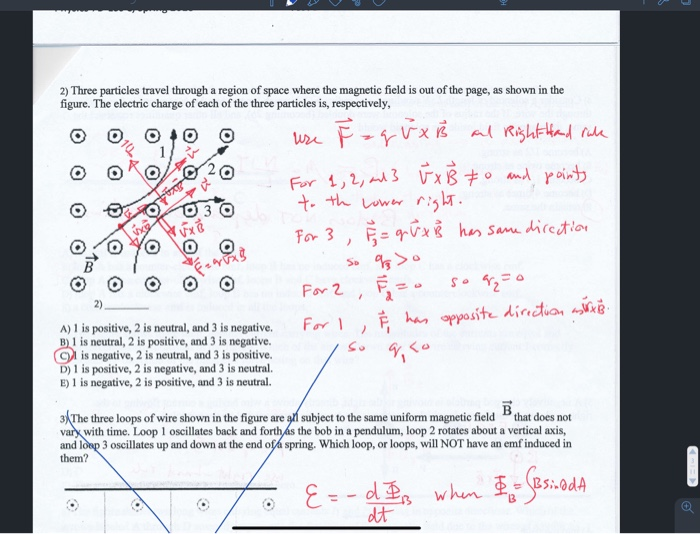 2) Three particles travel through a region of space where the magnetic field is out of the page, as shown in the
figure. The electric charge of each of the three particles is, respectively,
use F⃗ = q V⃗ × B⃗ and RightHand rule
1
2
3
B⃗
V⃗
V⃗
V⃗×B⃗
V⃗×B⃗
V⃗×B⃗
F⃗=qV⃗×B⃗
For 1, 2, and 3 V⃗×B⃗ ≠ 0 and points
to the lower right.
For 3, F⃗₃ = qV⃗×B⃗ has same direction
so q₃>0
For 2, F⃗₂ = 0 so q₂=0
For 1, F⃗₁ has opposite direction as V⃗×B⃗
so q₁<0
2)
A) 1 is positive, 2 is neutral, and 3 is negative.
B) 1 is neutral, 2 is positive, and 3 is negative.
C) 1 is negative, 2 is neutral, and 3 is positive.
D) 1 is positive, 2 is negative, and 3 is neutral.
E) 1 is negative, 2 is positive, and 3 is neutral.
3) The three loops of wire shown in the figure are all subject to the same uniform magnetic field B⃗ that does not
vary with time. Loop 1 oscillates back and forth as the bob in a pendulum, loop 2 rotates about a vertical axis,
and loop 3 oscillates up and down at the end of a spring. Which loop, or loops, will NOT have an emf induced in
them?
ℰ = - dΦ_B/dt when Φ_B = ∫BsinθdA